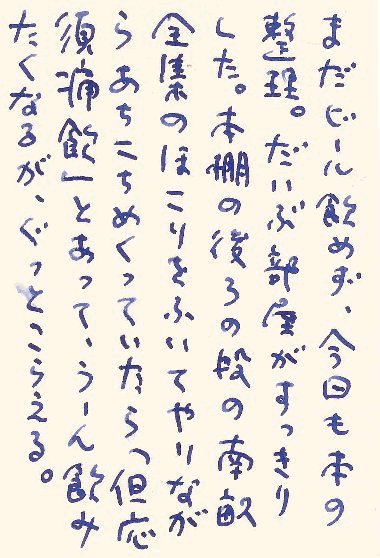 まだビール飲めず、今日も本の
整理。だいぶ部屋がすっきり
した。本棚の後ろの段の南畝
全集のほこりをふいてやりなが
らあちこちめくっていたら、「但応
須痛飲」とあって、うーん飲み
たくなるが、ぐっとこらえる。